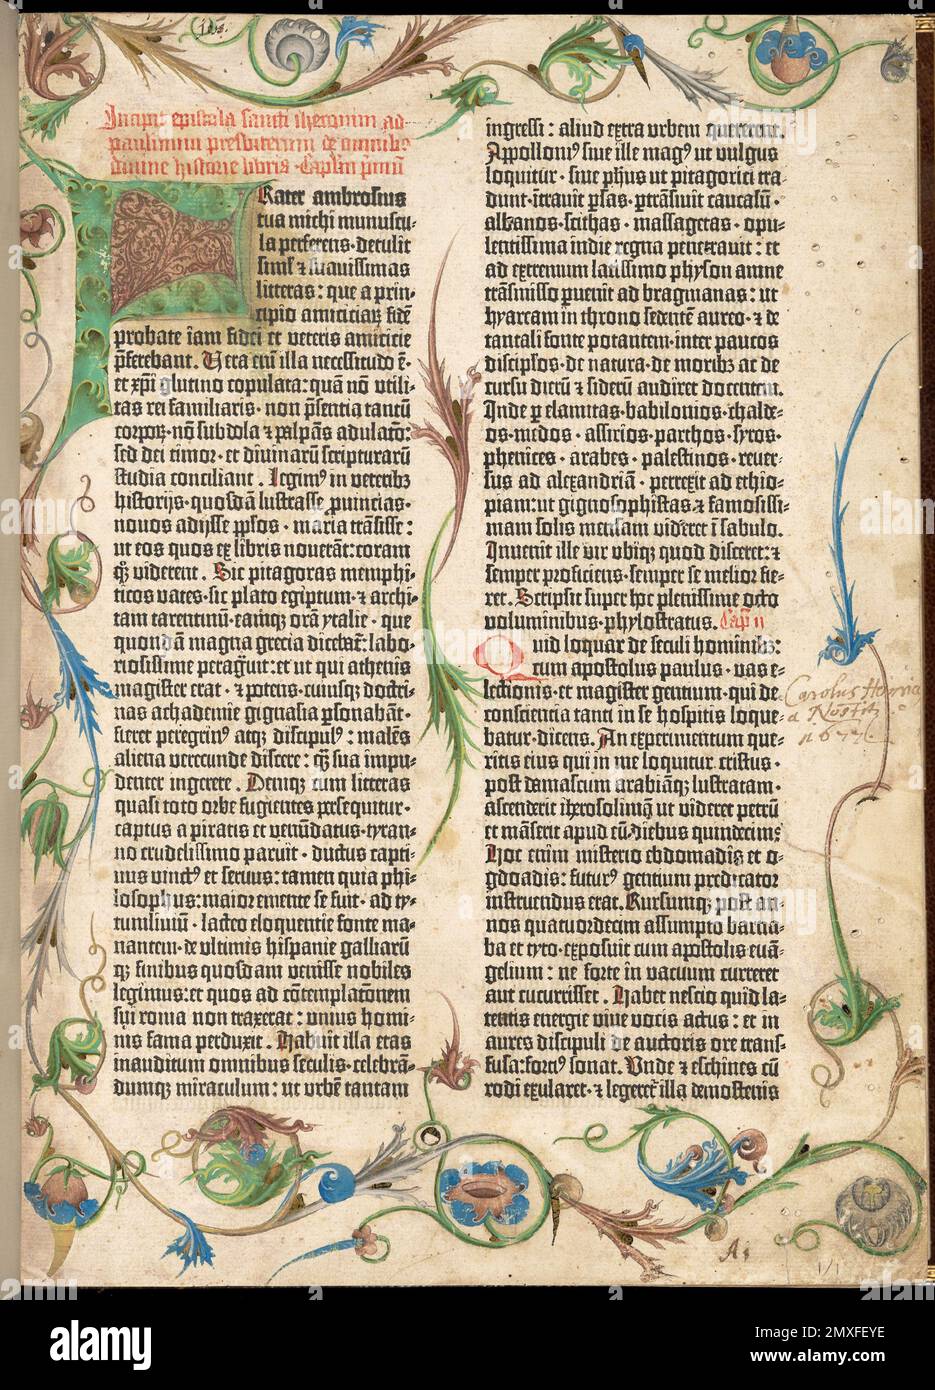 Incipit epistola sancti iheronimi ad
paulinum presbiterum de omnibus
divine historie libris. Caplm primū
Frater ambrosius
tua michi munuscu-
la perferens. detulit
siml' et suavissimas
litteras: que a prin-
cipio amiciciaꝝ fidē
probate iam fidei et veteris amicicie
p̄ferebant. Vera eni illa necessitudo ē.
et xp̄i glutino copulata: quā nō utili-
tas rei familiaris. non p̄sentia tantū
corpoꝝ. nō subdola et palpās adulatō:
sed dei timor. et divinarū scripturarū
studia conciliant. Legim⁹ in veterib⁊
historijs. quosdā lustrasse ꝓvincias.
novos adijsse pplos. maria trāsisse:
ut eos quos ex libris noverāt: coram
qꝫ viderent. Sic pitagoras memphi-
ticos vates. sic plato egiptum. et archi-
tam tarentinū. eamqꝫ orā ytalie. que
quondā magna grecia dicebat̄: labo-
riosissime peragravit: et ut qui athenis
magister erat. et potens. cuiusqꝫ doctri-
nas achademie gignasia ꝑsonabāt.
fieret peregrin⁹ atqꝫ discipul⁹: malēs
aliena verecunde discere: qꝫ sua impu-
denter ingerere. Deniqꝫ cum litteras
quasi toto orbe fugientes ꝑsequitur.
captus a piratis et venūdatus. tyran-
no crudelissimo paruit. ductus capti-
nus vinct⁹ et servus: tamen quia phi-
losophus: maior emente se fuit. ad ty-
tumlivium. lacteo eloquentie fonte ma-
nantem. de ultimis hispanie galliarū
qꝫ finibus quosdam venisse nobiles
legimus: et quos ad cōtemplatōnem
sui roma non traxerat: unius homi-
nis fama perduxit. Habuit illa etas
inauditum omnibus seculis. celebrā-
dumqꝫ miraculum: ut urbē tantam
ingressi: aliud extra urbem quererent.
Appolloni⁹ sive ille mag⁹ ut vulgus
loquitur. sive ph̄us ut pitagorici tra-
dunt. ītravit p̄sas. ꝑtrāsivit caucasū.
albanos. scithas. massagetas. opu-
lentissima indie regna penetravit: et
ad extremum latissimo physon amne
trāsmisso ꝑvenit ad bragmanas: ut
hyarcam in throno sedentē aureo. et de
tantali fonte potantem. inter paucos
discipl̄os. de natura. de moribꝫ ac de
cursu dierū et siderū audiret docentem.
Inde ꝑ elamitas. babilonios. chalde-
os. medos. assirios. parthos. syros.
phenices. arabes. palestinos. rever-
sus ad alexandriā. perrexit ad ethio-
piam: ut gignosophistas et famosissi-
mam solis mensam videret ī sabulo.
Invenit ille vir ubiqꝫ quod disceret: et
semper proficiens. semper se melior fie-
ret. Scripsit super hoc plenissime octo
voluminibus. phylostratus. Cap. II
Quid loquar de seculi hominibꝫ:
cum apostolus paulus. vas e-
lectionis. et magister gentium. qui de
conscientia tanti in se hospitis loque-
batur. dicens. An experimentum que-
ritis eius qui in me loquitur cristus.
post damascum arabiāqꝫ lustratam.
ascenderit iherosolimā ut videret petrū
et māserit apud eū. diebus quindecim?
Hoc enim misterio ebdomadis et o-
gdoadis: futur⁹ gentium predicator
instruendus erat. Rursumqꝫ post an-
nos quatuordecim assumpto barna-
ba et tyto. exposuit cum apostolis euā-
gelium: ne forte in vacuum curreret
aut cucurrisset. Habet nescio quid la-
tentis energie vive vocis actus: et in
aures discipuli de auctoris ore trans-
fusa: forti⁹ sonat. Unde et eschines cū
rodi exularet. et legeret̄ illa demostenis
Carolus Herna
a Nostitz
1677
A1
1/1
alamy
alamy
Image ID: 2MXFEYE
www.alamy.com